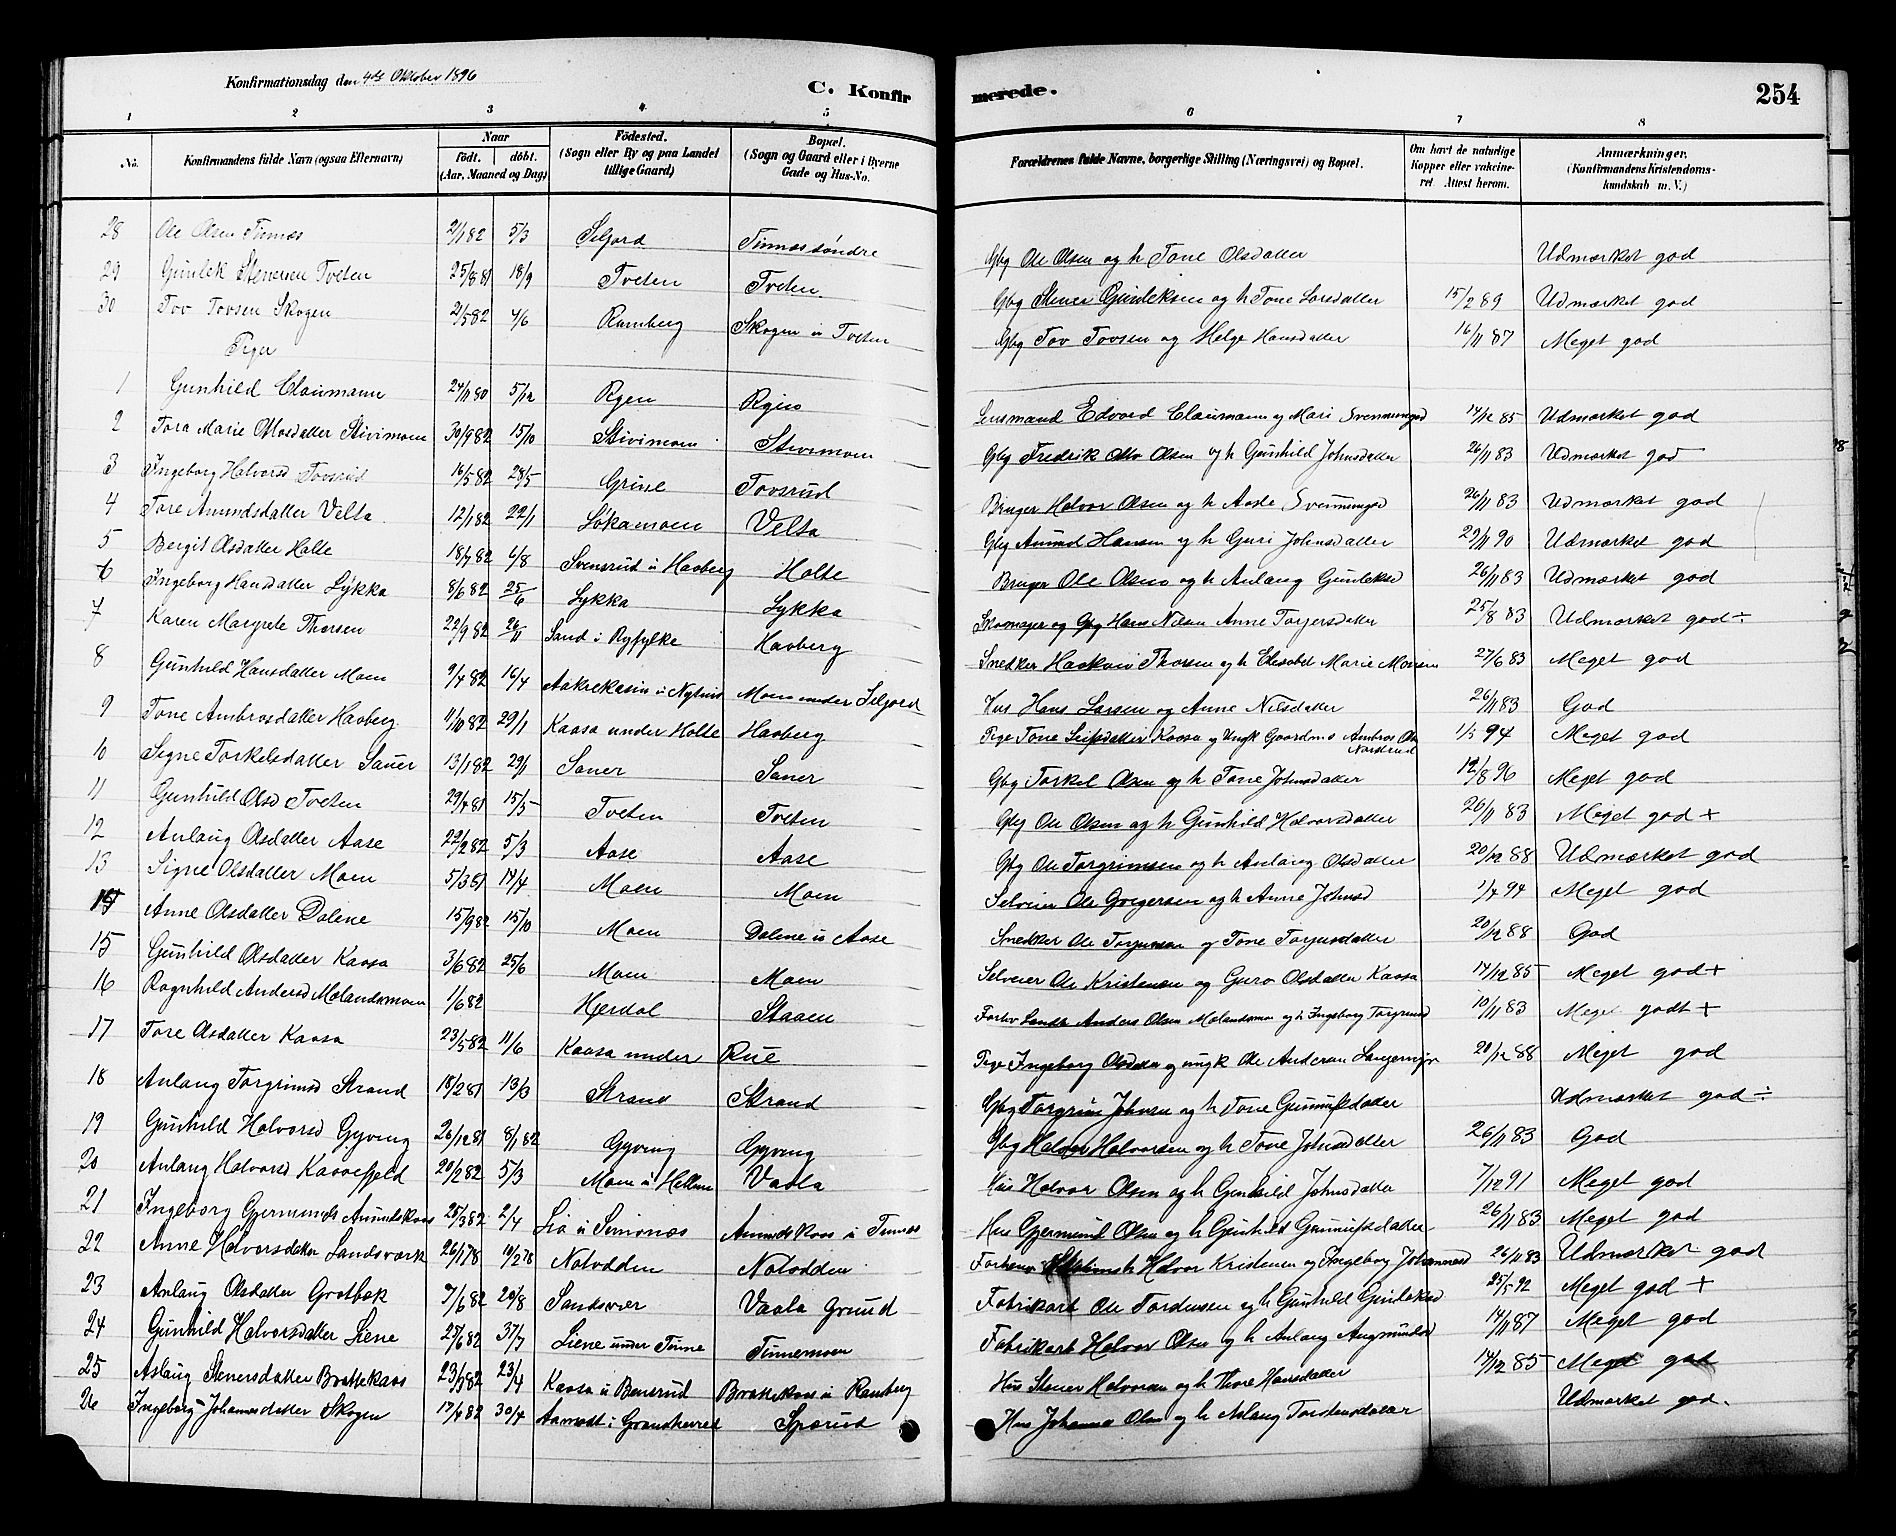 Konfirmationsdag den 4de Oktober 1896
C. Konfirmerede.
254
1 2 3 4 5 6 7 8
No. Konfirmandens fulde Navn (ogsaa Efternavn) Naar født. døbt. (Aar, Maaned og Dag) Fødested. (Sogn eller By og paa Landet tillige Gaard) Bopæl. (Sogn og Gaard eller i Byerne Gade og Hus-No. Forældrenes fulde Navne, borgerlige Stilling (Næringsvei) og Bopæl. Om havt de naturlige Kopper eller vakcineret Attest herom. Anmærkninger. (Konfirmandens Kristendomskundskab m. V.)
28 Ole Olsen Tinnæs 2/1 82 5/3 Seljord Tinnæs søndre Gbg Ole Olsen og h Tone Olsdatter Udmærket god
29 Gunlek Stenersen Tveten 25/8 81 18/9 Tveten Tveten Gbg Stener Gunleksen og h Tone Larsdatter 15/2 89 Udmærket god
30 Tov Tovsen Skogen 2/5 82 4/6 Ramberg Skogen u Tveten Gbg Tov Tovsen og Helge Hansdatter 16/11 87 Meget god
Piger
1 Gunhild Claumann 24/11 80 5/12 Rgen Rgen Lensmand Edvard Claumann og Mari Svenungsd 14/12 85 Udmærket god
2 Tora Marie Olvsdatter Stivimoen 30/9 82 15/10 Stivimoen Stivimoen Gbg Fredrik Olsen og h Gunhild Johnsdatter 26/11 83 Udmærket god
3 Ingeborg Halvorsd Tovsrud 16/5 82 28/5 Grine Tovsrud Bruger Halvor Olsen og h Aase Svenungsd 26/11 83 Udmærket god
4 Tore Amundsdatter Velta 12/1 82 22/1 Løkamoen Velta Gbg Amund Hansen og h Guri Johnsdatter 29/11 90 Udmærket god
5 Bergit Olsdatter Holte 18/7 82 6/8 Svensrud u Haaberg Holte Bruger Ole Olsen og h Anlaug Gunleksd 26/11 83 Udmærket god
6 Ingeborg Hansdatter Lykka 8/6 82 25/6 Lykka Lykka Skomager og Gbg Hans Nilsen Anne Torjersdatter 25/8 83 Udmærket god÷
7 Karen Margrete Thorsen 22/9 82 26/11 Sand i Ryfylke Haaberg Snedker Haakon Thorsen og h Elisabet Marie 27/6 83 Meget god
8 Gunhild Hansdatter Moen 9/4 82 16/4 Moen under Seljord Hus Hans Larsen og Anne Nilsdatter 26/11 83 God
9 Tone Ambrosdatter Haaberg 11/10 82 29/1 Kaasa under Holte Haaberg Pige Tone Leifsdatter Kaasa og Ungk Ambros Ols Nordstrud 1/5 94 Meget god
10 Signe Torkelsdatter Sauer 13/1 82 29/1 Sauer Sauer Gbg Torkel Olsen og h Tone Johnsdatter 12/8 96 Meget god
11 Gunhild Olsd Tveten 29/4 81 15/5 Tveten Tveten Gbg Ole Olsen og h Gunhild Halvorsdatter 26/11 83 Meget god +
12 Anlaug Olsdatter Aase 22/2 82 5/3 Aase Aase Gbg Ole Torgrimsen og h Anlaug Olsdatter 20/12 88 Udmærket god
13 Signe Olsdatter Moen 5/3 81 14/4 Moen Moen Selveier Ole Gregersen og h Anne Johnsd 1/4 94 Meget god
14 Anne Olsdatter Dalene 15/9 82 15/10 Moen Dalene u Aase Snedker Ole Torjusen og Tone Torjusdatter 20/12 88 God
15 Gunhild Olsdatter Kaasa 3/6 82 25/6 Moen Moen Selveier Ole Kristensen og Guro Olsdatter Kaasa 14/12 85 Meget god+
16 Ragnhild Andersd Molandsmoen 1/6 82 Hjerdal Staaen Anders Olsen Molandsmoen og h Ingeborg Torgrimsd 10/11 83 Meget godt +
17 Tore Olsdatter Kaasa 23/5 82 11/6 Kaasa under Rue Pige Ingeborg Olsdatter og ungk Ole Andersen 20/12 88 Meget god
18 Anlaug Torgrimsd Strand 18/2 81 13/3 Strand Strand Gbg Torgrim Johnsen og h Tone Gunulfsdatter Udmærket god÷
19 Gunhild Halvorsd Gyving 26/12 81 8/1 82 Gyving Gyving Gbg Halvor Halvorsen og h Tone Johnsdatter 26/11 83 God
20 Anlaug Halvorsd Kaasefjeld 20/2 82 5/3 Vaala Hus Halvor Olsen og h Gunhild Johnsdatter 7/12 91 Meget god
21 Ingeborg Gjermunds Amundskaas 25/3 82 2/4 Lia u Simonæs Amundskaas u Tinnæs Hus Gjermund Olsen og h Gunhild Gunulfsdatter 26/11 83 Meget god
22 Anne Halvorsdatter Landsværk 26/1 78 10/2 78 Notodden Notodden Halvor Kristensen og Ingeborg Johannesd 26/11 83 Udmærket god
23 Anlaug Olsdatter Grotbæk 7/6 82 20/8 Sandsvær Vaala Grund Fabrikarb Ole Tordensen og h Gunhild Gunleksd 25/5 92 Meget god +
24 Gunhild Halvorsdatter Liene 27/6 82 37/7 Liene under Tinne Tinnemoen Fabrikarb Halvor Olsen og h Anlaug Augmundsd 14/11 87 Meget god
25 Aslaug Stenersdatter Brattekaas 23/3 82 23/4 Kaasa u Bensrud Brattekaas u Ramberg Hus Stener Halvorsen og h Thore Hansdatter 14/12 85 Meget god
26 Ingeborg Johannesdatter Skogen 17/4 82 30/4 Aamodt i Gransherred Sparud Hus Johannes Olsen og h Aslaug Torstensdatter Udmærket god.